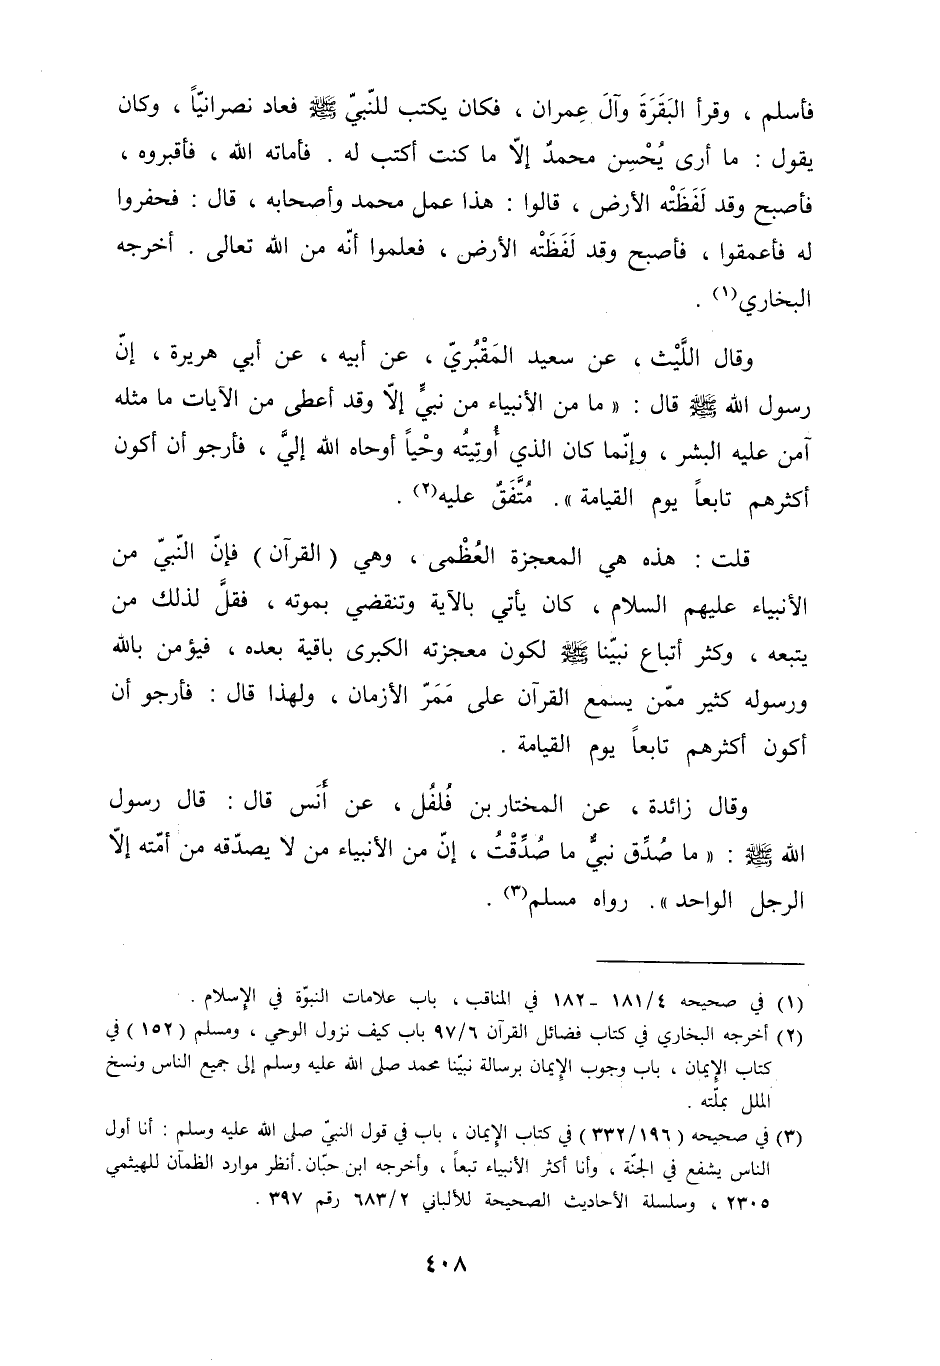 فأسلم ، وقرأ البَقَرَةَ وآلَ عِمران ، فكان يكتب للنّبيّ ﷺ فعاد نصرانيّاً ، وكان
يقول : ما أرى يُحْسِن محمدٌ إلّا ما كنت أكتب له . فأماته الله ، فأقبروه ،
فأصبح وقد لَفَظَتْه الأرض ، قالوا : هذا عمل محمد وأصحابه ، قال : فحفروا
له فأعمقوا ، فأصبح وقد لَفَظَتْه الأرض ، فعلموا أنّه من الله تعالى . أخرجه
البخاري(١) .
وقال اللَّيْث ، عن سعيد المَقْبُريّ ، عن أبيه ، عن أبي هريرة ، إنّ
رسول الله ﷺ قال : « ما من الأنبياء من نبيٍّ إلّا وقد أعطى من الآيات ما مثله
آمن عليه البشر ، وإنّما كان الذي أُوتِيتُه وحْياً أوحاه الله إليَّ ، فأرجو أن أكون
أكثرهم تابعاً يوم القيامة ». مُتَّفَقٌ عليه(٢) .
قلت : هذه هي المعجزة العُظْمى ، وهي ( القرآن ) فإنّ النّبيّ من
الأنبياء عليهم السلام ، كان يأتي بالآية وتنقضي بموته ، فقلَّ لذلك من
يتبعه ، وكثر أتباع نبيّنا ﷺ لكون معجزته الكبرى باقية بعده ، فيؤمن بالله
ورسوله كثير ممّن يسمع القرآن على مَمَرّ الأزمان ، ولهذا قال : فأرجو أن
أكون أكثرهم تابعاً يوم القيامة .
وقال زائدة ، عن المختار بن فُلفُل ، عن أَنَس قال : قال رسول
الله ﷺ : « ما صُدِّق نبيٌّ ما صُدِّقْتُ ، إنّ من الأنبياء من لا يصدّقه من أمّته إلّا
الرجل الواحد ». رواه مسلم(٣) .
(١) في صحيحه ١٨١/٤ - ١٨٢ في المناقب ، باب علامات النبوّة في الإسلام .
(٢) أخرجه البخاري في كتاب فضائل القرآن ٩٧/٦ باب كيف نزول الوحي ، ومسلم ( ١٥٢ ) في
كتاب الإيمان ، باب وجوب الإيمان برسالة نبيّنا محمد صلى الله عليه وسلم إلى جميع الناس ونسخ
الملل بملّته .
(٣) في صحيحه ( ٣٣٢/١٩٦ ) في كتاب الإيمان ، باب في قول النبيّ صلى الله عليه وسلم : أنا أول
الناس يشفع في الجنّة ، وأنا أكثر الأنبياء تبعاً ، وأخرجه ابن حبّان. أنظر موارد الظمآن للهيثمي
٢٣٠٥ ، وسلسلة الأحاديث الصحيحة للألباني ٦٨٣/٢ رقم ٣٩٧ .
٤٠٨